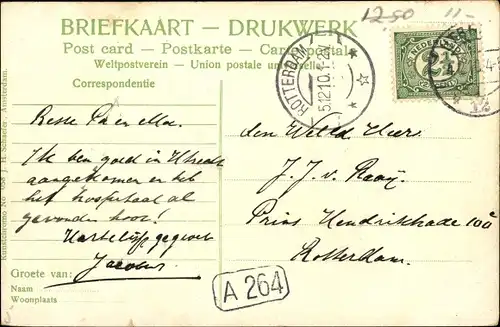 1250
11-
BRIEFKAART — DRUKWERK
Post card — Postkarte — Carte postale
Weltpostverein — Union postale universelle
Correspondentie
NEDERLAND
2½
ROTTERDAM
5.12.10.1-2N
Beste Pa en Moe.
Ik ben goed in Utrecht
aangekomen en heb
het hospitaal al
gevonden hoor!
Hartelijk gegroet
Jacobus
Den Weled Heer
J. J. v. Raaij
Prins Hendrikkade 100
Rotterdam.
Groete van:
Naam
Woonplaats
A 264
J. H. Schaefer, Amsterdam.